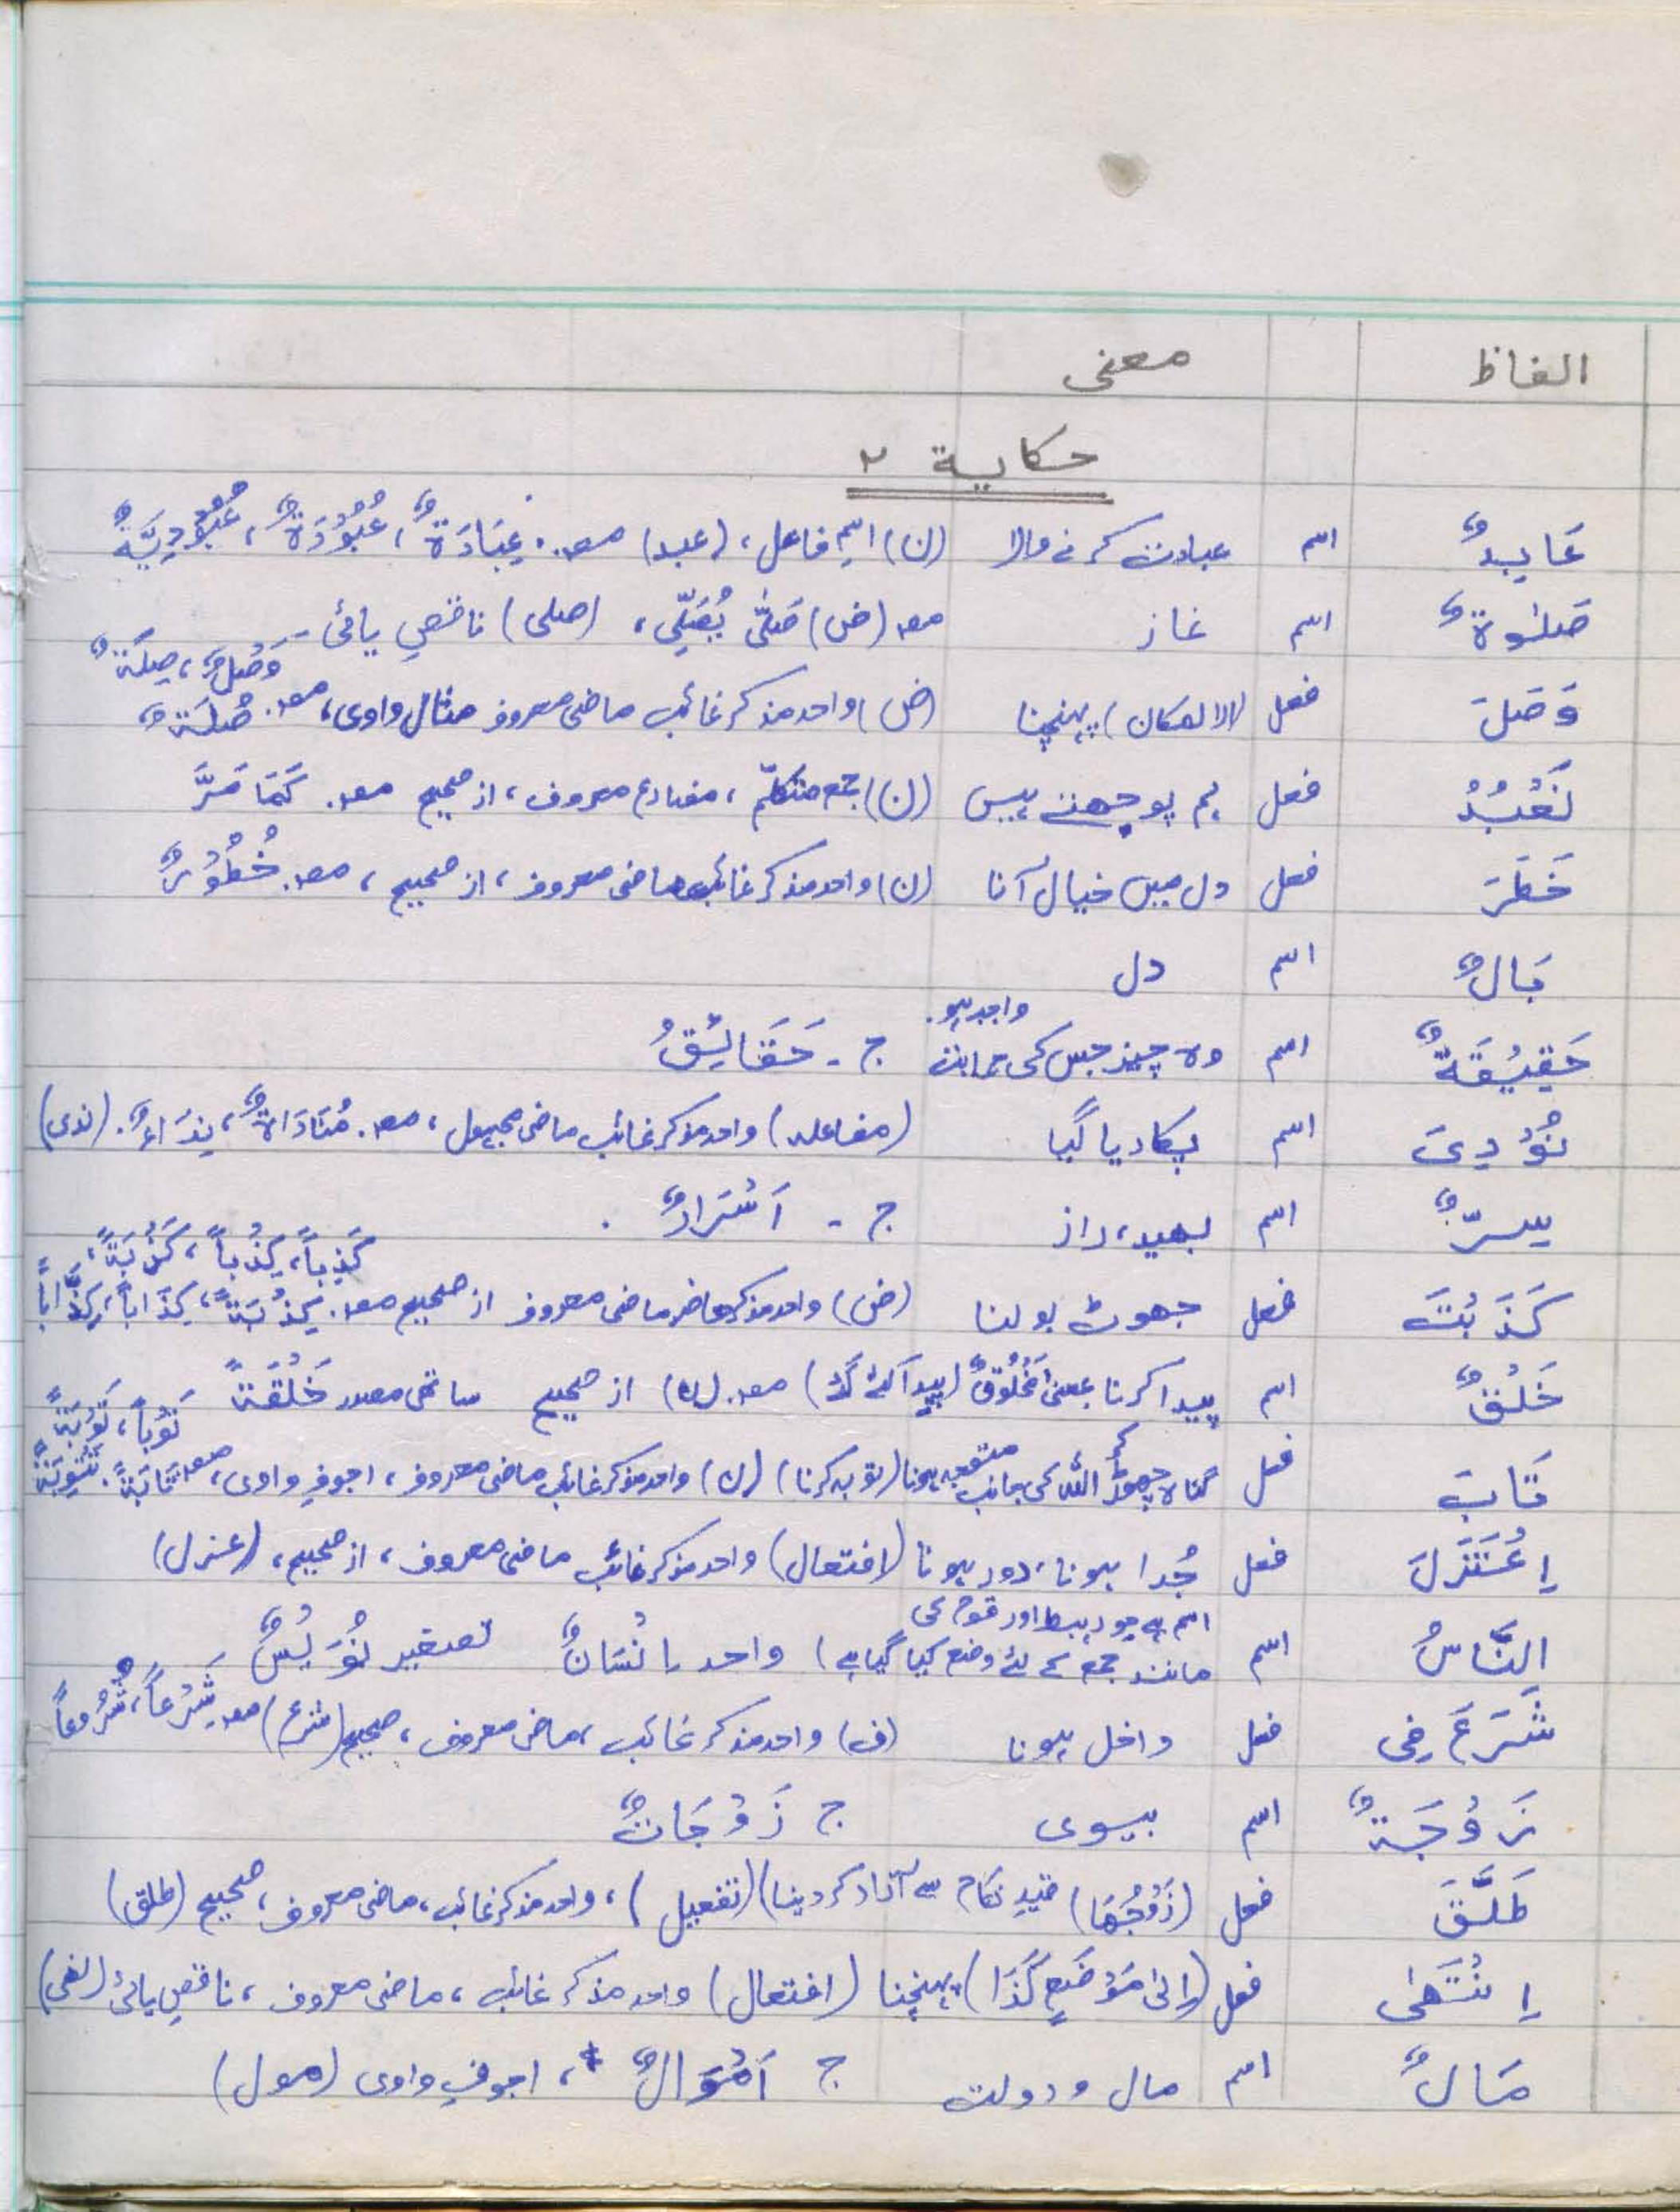 الفاظ معنی
حکایة ۲
عَابِدٌ اسم عبادت کرنے والا (ن) اسمِ فاعل، (عبد) مصہ. عِبَادَةٌ، عُبُوْدَةٌ، عُبُوْدِیَّةٌ
صَلٰوةٌ اسم نماز مصہ (ض) صَلّٰی یُصَلِّی، (صلی) ناقصِ یائی
وَصَلَ فعل (الا المکان) پہنچنا (ض) واحد مذکر غائب ماضی معروف مثال واوی، مصہ. وَصْلٌ، صِلَةٌ صُلَةٌ
نَعْبُدُ فعل ہم پوجھتے ہیں (ن) جمع متکلّم، مضارع معروف، از صحیح مصہ. کَمَا مَرَّ
خَطَرَ فعل دل میں خیال آنا (ن) واحد مذکر غائب ماضی معروف، از صحیح، مصہ. خُطُوْرٌ
بَالٌ اسم دل
حَقِیْقَةٌ اسم وہ چیز جس کی حمایت واجب ہو. ج - حَقَائِقُ
نُوْدِیَ اسم پکار دیا گیا (مفاعلہ) واحد مذکر غائب ماضی مجہول، مصہ. مُنَادَاةٌ، نِدَاءٌ. (ندی)
سِرٌّ اسم بھید، راز ج - اَسْرَارٌ .
کَذَبْتَ فعل جھوٹ بولنا (ض) واحد مذکر حاضر ماضی معروف از صحیح مصہ. کَذِباً، کِذْباً، کَذْبَةً، کِذْبَةً، کِذَاباً، کِذَّاباً
خَلْقٌ اسم پیدا کرنا بمعنیٰ مَخْلُوْقٌ (پیدا کئے گئے) مصہ. (ن) از صحیح ساتھی مصدر خَلْقَةً
تَابَ فعل گناہ چھوڑ کر اللہ کی جانب متوجہ ہونا (توبہ کرنا) (ن) واحد مذکر غائب ماضی معروف، اجوفِ واوی، مصہ تَوْباً، تَوْبَةً تَابَةً. تَتْوِبَةً
اِعْتَزَلَ فعل جُدا ہونا، دور ہونا (افتعال) واحد مذکر غائب ماضی معروف، از صحیح، (عزل)
النَّاسُ اسم اسم ہے جو رہط اور قوم کی مانند جمع کے لئے وضع کیا گیا ہے) واحد اِنْسَانٌ تصغیر نُوَیْسٌ
شَرَعَ فِی فعل داخل ہونا (ف) واحد مذکر غائب، ماضی معروف، صحیح (شرع) مصہ شَرْعاً، شُرُوعاً
زَوْجَةٌ اسم بیوی ج زَوْجَاتٌ
طَلَّقَ فعل (زَوْجَهَا) قیدِ نکاح سے آزاد کر دینا) (تفعیل)، واحد مذکر غائب، ماضی معروف، صحیح (طلق)
اِنْتَهٰی فعل (اِلیٰ مَوْضَعٍ کَذَا) پہنچنا (افتعال) واحد مذکر غائب، ماضی معروف، ناقصِ یائی (نھی)
مَالٌ اسم مال و دولت ج اَمْوَالٌ، اجوفِ واوی (مول)